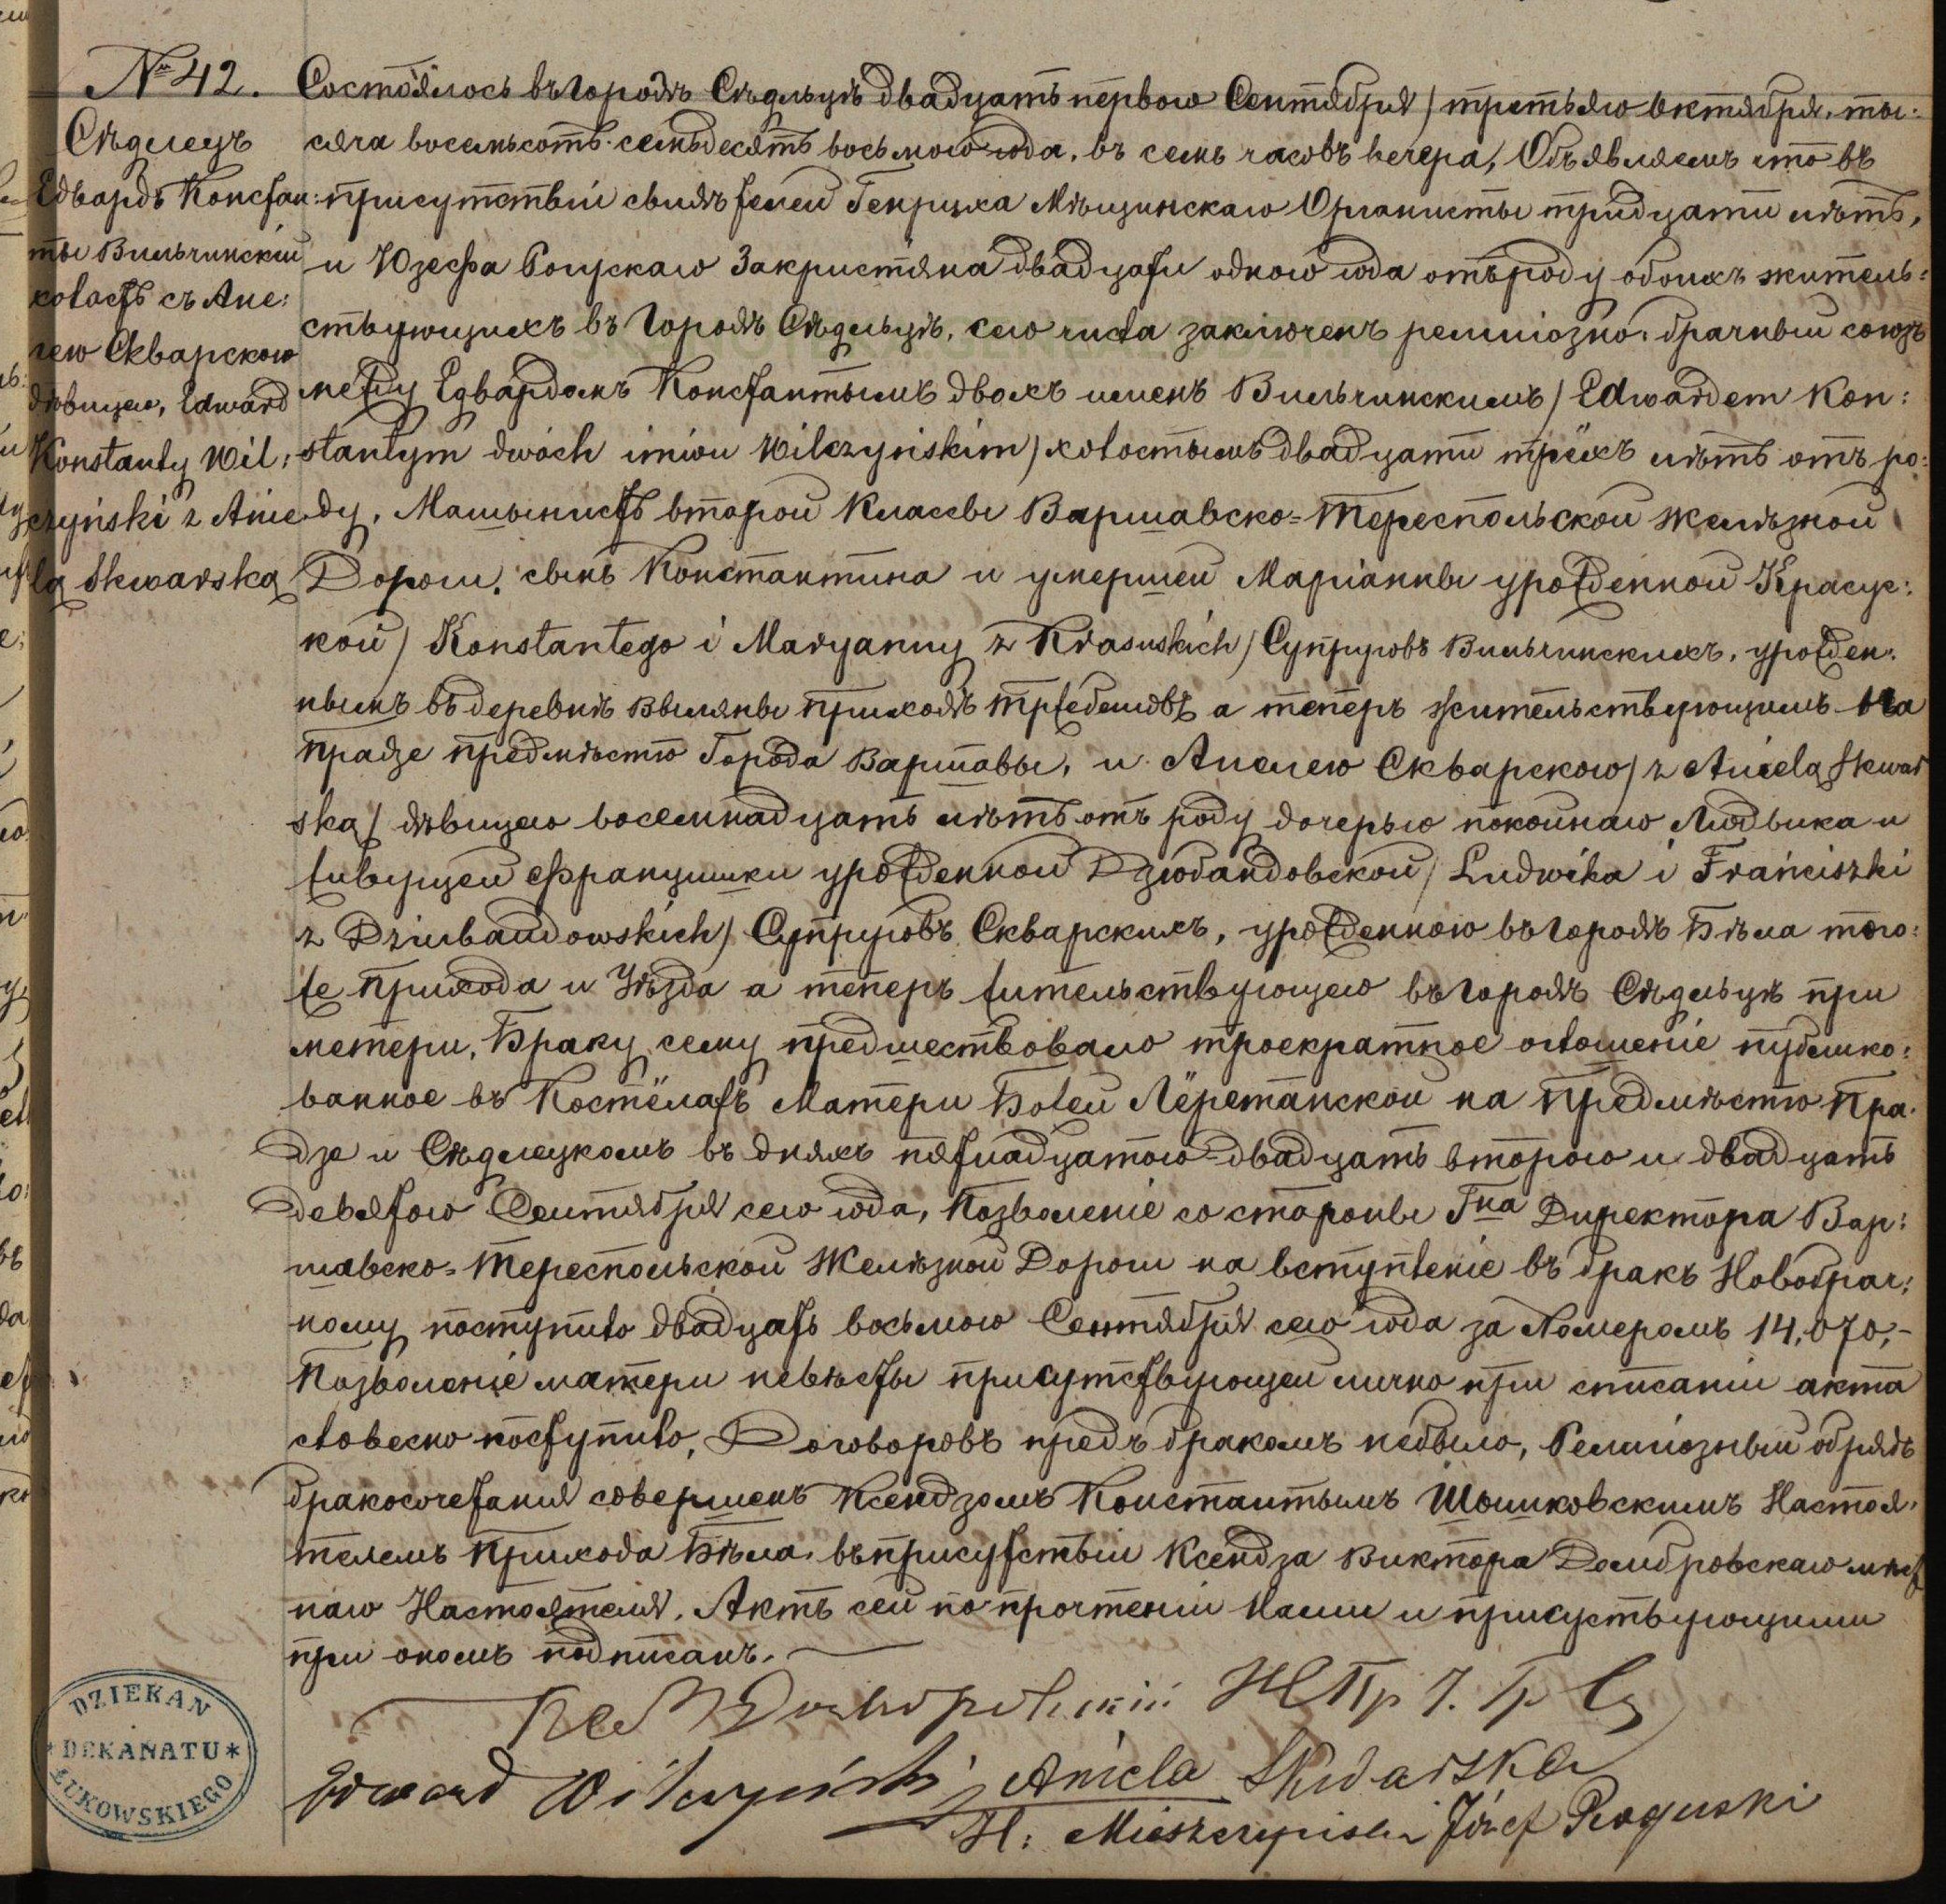 № 42.
Сѣдлецъ
Едвардъ Констан:
ты Вильчинскій
холостъ съ Ане:
лею Скварскою
дѣвицею, Edward
Konstanty Wil:
czyński z Anie
lą Skwarską
Состоялось въ Городѣ Сѣдльцѣ двадцать первого Сентября / третьяго октября, ты:
сяча восемьсотъ семьдесятъ восьмого года, въ семь часовъ вечера, Объявляемъ что въ
присутствіи свидѣтелей Генрыка Мѣщинскаго Органисты тридцати лѣтъ,
и Юзефа Рогускаго Закристіяна двадцати одного года отъ роду обоихъ житель:
ствующихъ въ Городѣ Сѣдльцѣ, сего числа заключенъ религіозно-брачный союзъ
между Едвардомъ Константымъ двохъ именъ Вильчинскимъ / Edwardem Kon:
stantym dwóch imion Wilczyńskim / холостымъ двадцати трёхъ лѣтъ отъ ро:
ду, Машынистъ второй Классы Варшавско=Тереспольской желѣзной
Дороги, сынъ Константина и умершей Маріанны урожденной Красус:
кой / Konstantego i Maryanny z Krasuskich / Супруговъ Вильчинскихъ, урожден:
нымъ въ деревнѣ приходѣ а теперъ жительствующимъ на
Прадзе предмѣстю Города Варшавы, и Анелею Скварскою / z Anielą Skwar
ską / дѣвицею восемнадцать лѣтъ отъ роду дочерью покойнаго Людвика и
живущей Францишки урожденной Дзюбандовской / Ludwika i Franciszki
z Dziubandowskich / Супруговъ Скварскихъ, урожденною въ Городѣ Бѣла того:
же Прихода и Уѣзда а теперъ жительствующею въ Городѣ Сѣдльцѣ при
метери, Браку сему предшествовало троекратное оглошеніе публико:
ванное въ Костёлахъ Матери Божей Лёретанской на Предмѣстю Пра:
дзе и Сѣдлецкомъ въ дняхъ пятнадцатого двадцать второго и двадцать
девятого Сентября сего года, Позволеніе со стороны Гна Директора Вар:
шавско=Тереспольской Желѣзной Дороги на вступленіе въ бракъ Новобрач:
ному поступило двадцать восьмого Сентября сего года за Номеромъ 14,070,-
Позволеніе матери невѣсты присутствующей лично при списаніи акта
словесно поступило, Договоровъ предъ бракомъ небыло, Религіозный обрядъ
бракосочетанія совершенъ Ксендзомъ Константымъ Настоя:
телемъ Прихода Бѣла, въ присутствіи Ксендза Виктора Домбровскаго мѣст
наго Настоятеля. Актъ сей по прочтеніи Нами и присуствующими
при ономъ подписанъ.
Edward Wilczyński, Aniela Skwarska
H: Mieszczyński Józef Roguski
DZIEKAN
* DEKANATU *
ŁUKOWSKIEGO